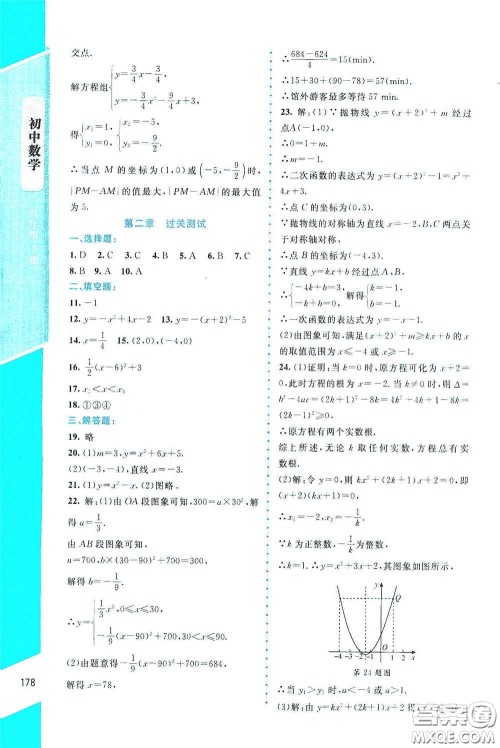 初中数学
交点.
解方程组{y=3/4x-3/2, y=-3/4x-3,
得{x₁=1 y₁=0, {x₂=-5 y₂=-9/2
∴当点 M 的坐标为(1,0)或(-5,-9/2)时,
|PM-AM|的值最大,|PM-AM|的最大值
为 5.
第二章 过关测试
一、选择题:
1. D 2. C 3. A 4. B 5. D 6. D 7. C
8. B 9. A 10. A
二、填空题:
11. -1
12. y=-x²+4x-2 13. y=(x+2)²-5
14. x=1/3 15. (2,0),(-4,0)
16. y=1/2(x-6)²+3
17. x₂<x₁<x₃
18. ①③④
三、解答题:
19. 略
20. (1)m=3,y=x²+6x+5.
(2)(-3,-4),直线 x=-3.
21. (1)y=x²-x.(2)图略.
22. 解:(1)由 OA 段图象可知,300=a×30²,解
得 a=1/3.
由 AB 段图象可知,
n=700,b×(30-90)²+700=300,
解得 b=-1/9.
∴y={1/3x²,0≤x≤30, -1/9(x-90)²+700,30≤x≤90.
(2)由题意得-1/9(x-90)²+700=684,
解得 x=78,
178
∴(684-624)/4=15(min).
∴15+30+(90-78)=57 min.
∴馆外游客最多等待57 min.
23. 解:(1)∵抛物线 y=(x+2)²+m 经过
点A(-1,0),
∴0=1+m.
∴m=-1.
∴二次函数的表达式为 y=(x+2)²-1.
∴点C的坐标为(0,3).
∵抛物线的对称轴为直线 x=-2,B,C关
于对称轴对称,
∴点B的坐标为(-4,3).
∴{-4k+b=3, -k+b=0. 解得{k=-1, b=-1.
∴一次函数的表达式为 y=-x-1.
(2)由图象可知,满足(x+2)²+m≥kx+b 的x
的取值范围为 x≤-4 或 x≥-1.
24. (1)证明:当 k=0 时,原方程可化为 x+2=
0,此时方程有解;当 k≠0 时,原方程中 Δ=
b²-4ac=(2k+1)²-8k=(2k-1)²≥0,
∴原方程有两个实数根.
综上所述,无论 k 取任何实数,方程总有实
数根.
(2)解:令 y=0,则 kx²+(2k+1)x+2=0,即
(kx+1)(x+2)=0,
∴x₁=-2,x₂=-1/k.
∵k为正整数,-1/k为整数,
∴k=1. ∴y=x²+3x+2,其图象如图所示.
y
P
Q
-4 -3 -2 -1 O 1 2 x
第24题图
∴当 y₁>y₂ 时,a<-4 或 a>1.
(3)解:
答案圈
MXQE.COM